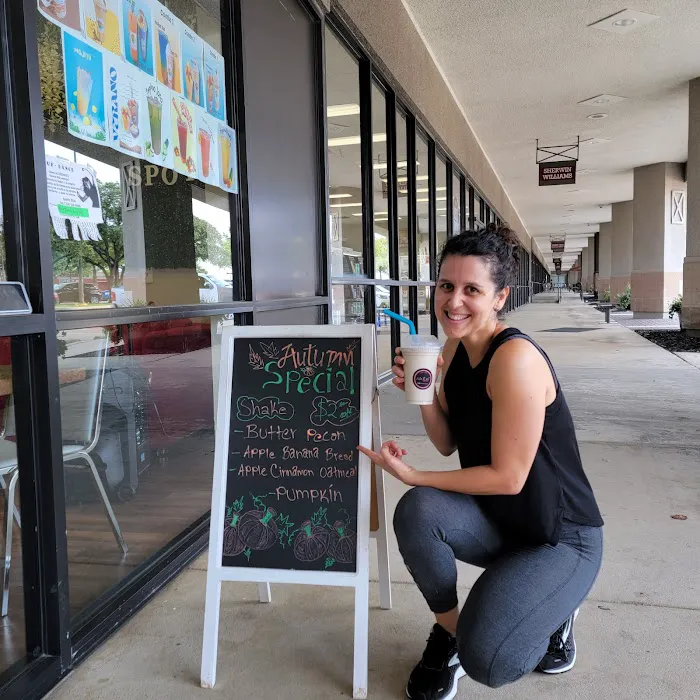 SPO
SHERWIN
WILLIAMS
Autumn
Special
Shake $2 off
- Butter Pecon
- Apple Banana Bread
- Apple Cinnamon Oatmeal
- Pumpkin